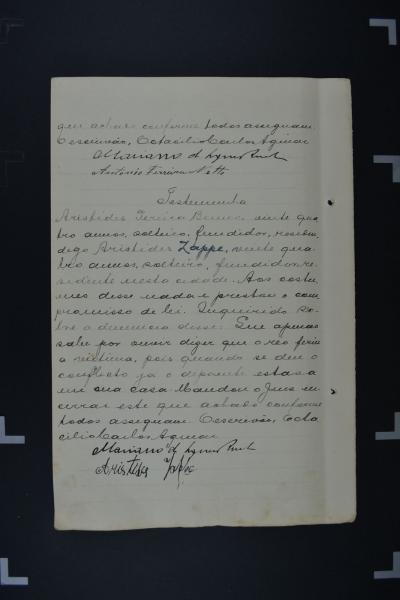 que achado conforme todos assignam.
O escrivão, Octacilio Carlos Aguiar
Mariano
Antonio Ferreira Netto
Testemunha
Aristides Pereira vinte qua
tro annos, solteiro, fundidor,
digo Aristides Zappe, vinte qua
tro annos, solteiro, fundidor, re
sidente nesta cidade. Aos costu
mes disse nada e prestou o com
promisso de lei. Inquirido so
bre a denuncia disse: Que apenas
sabe por ouvir dizer que o réo feriu
a victima, pois quando se deu o
conflicto já o depoente estava
em sua casa. Mandou o Juiz en
cerrar este que achado conforme
todos assignam. O escrivão, Octa
cilio Carlos Aguiar
Mariano
Aristides Zappe